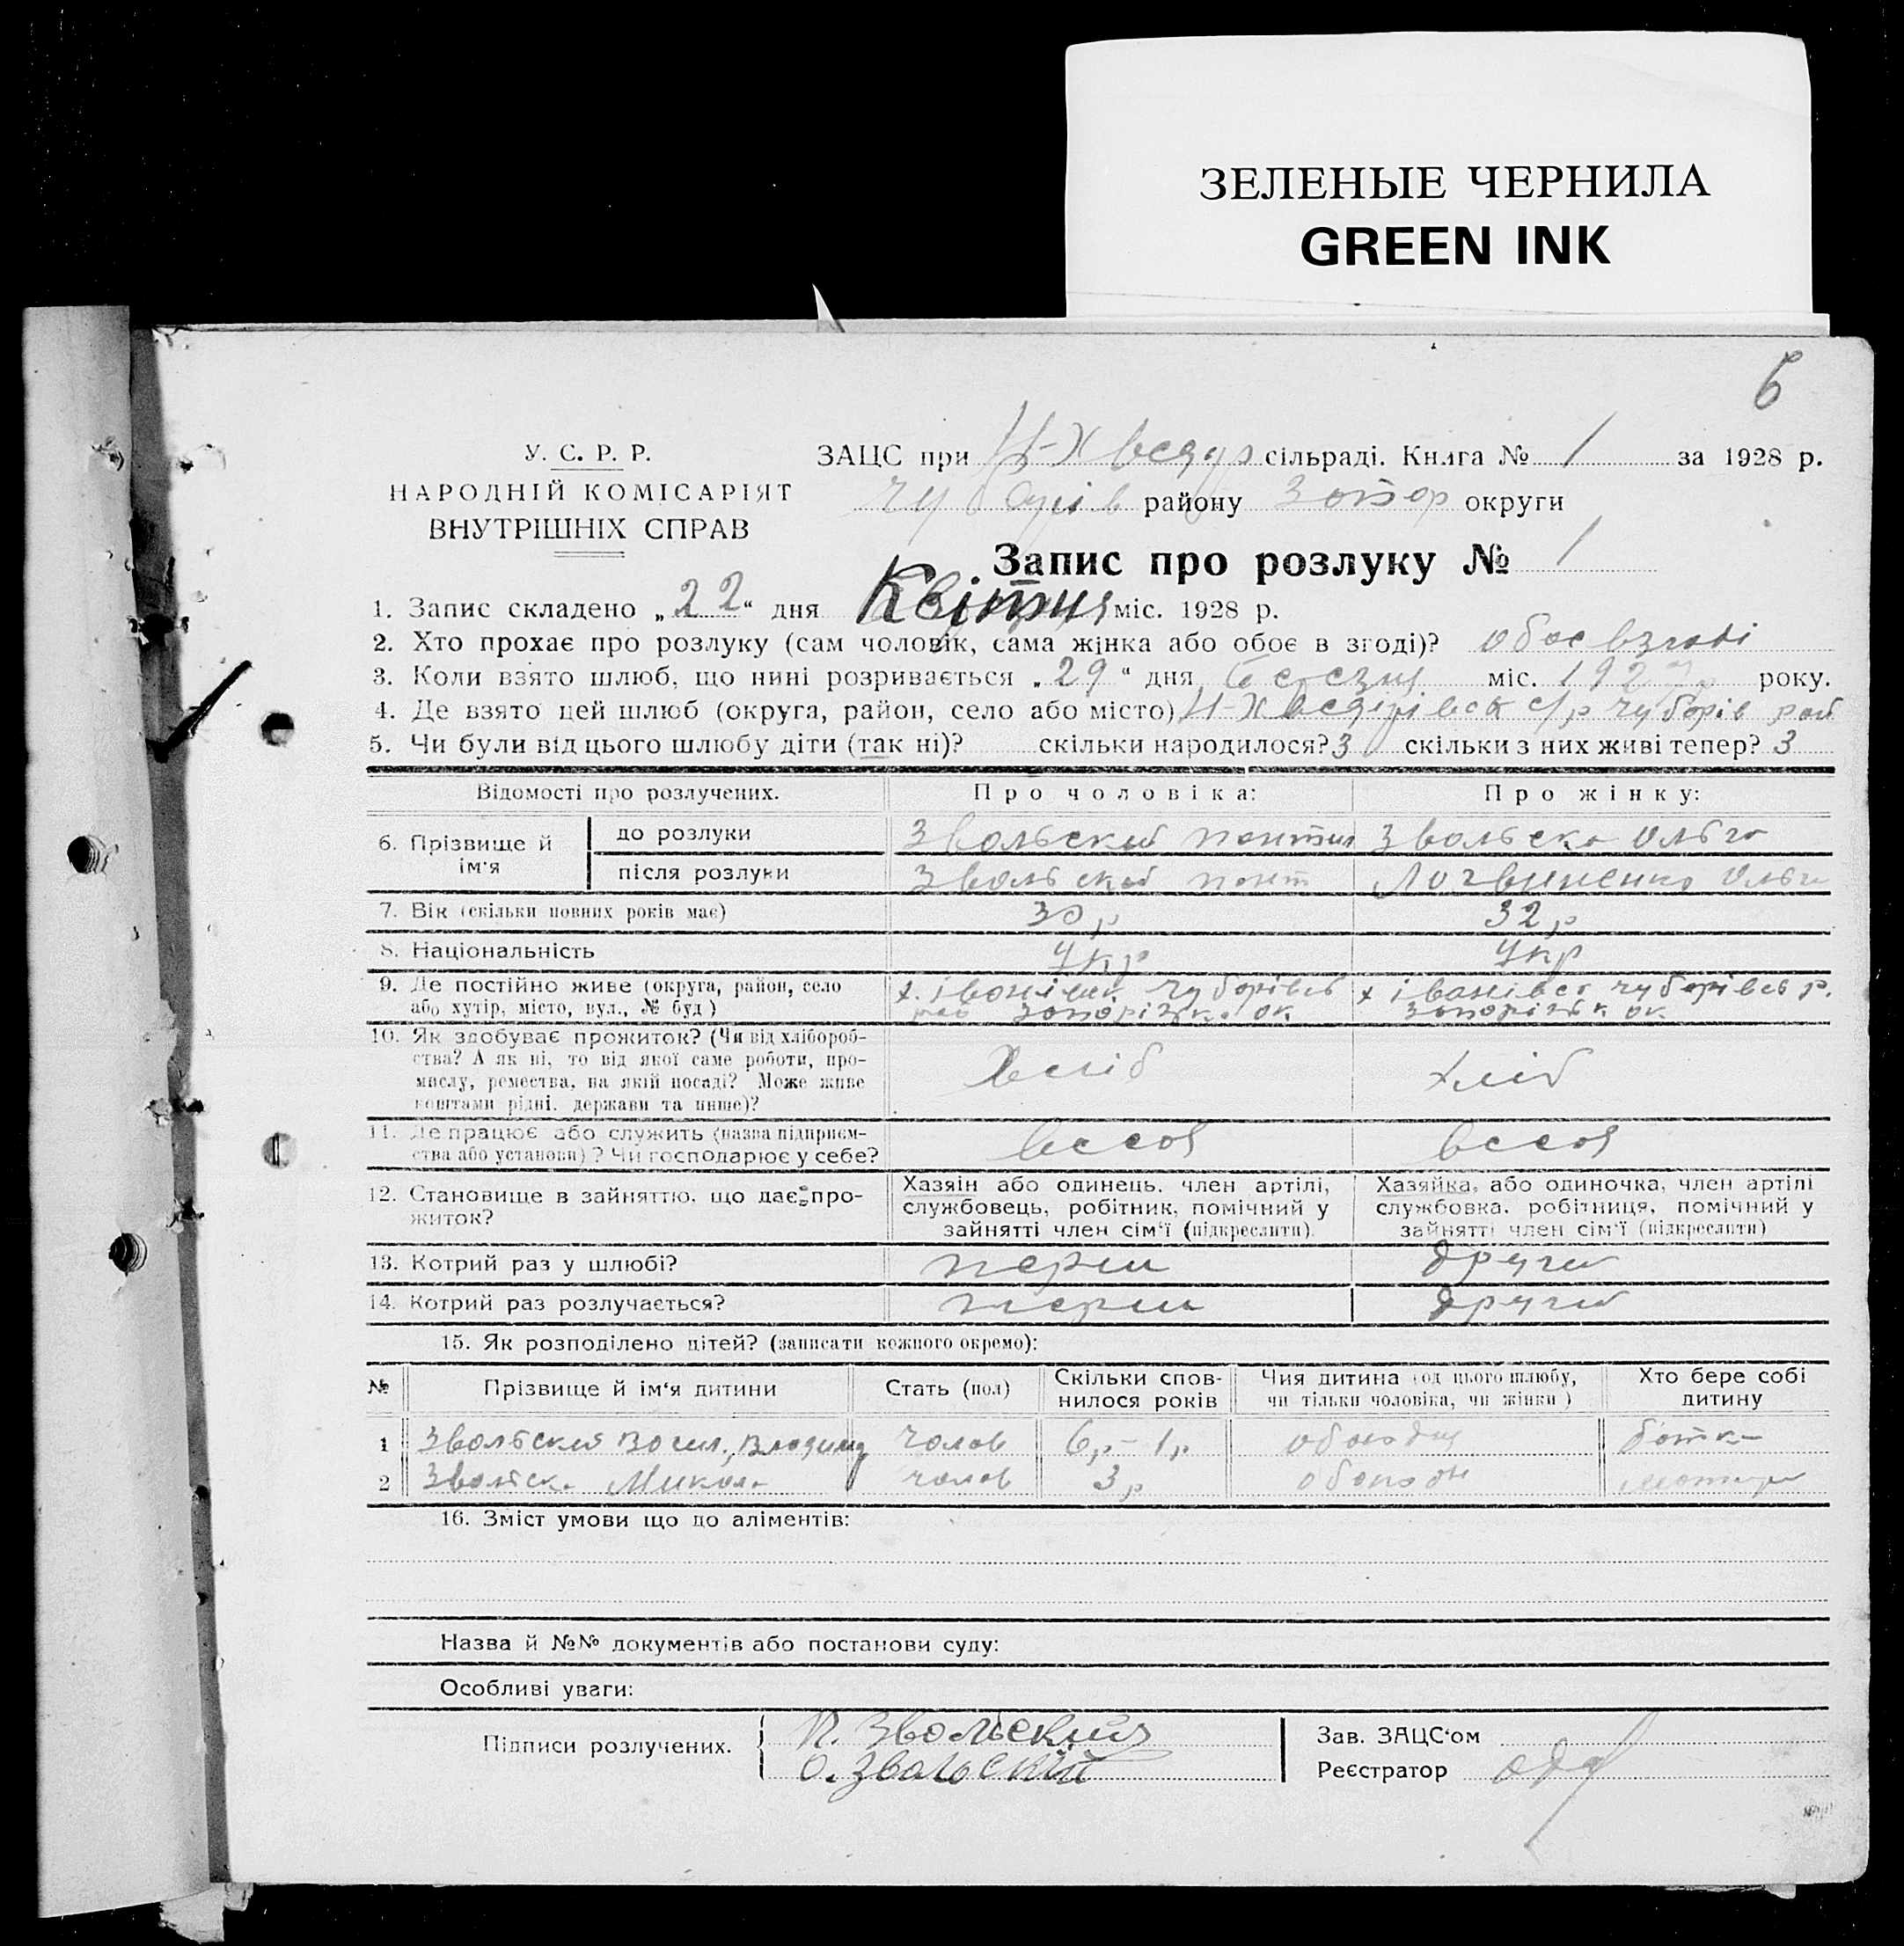 ЗЕЛЕНЫЕ ЧЕРНИЛА
GREEN INK
6
У. С. Р. Р.
НАРОДНІЙ КОМІСАРІЯТ
ВНУТРІШНІХ СПРАВ
ЗАЦС при Н-Хведур сільраді. Книга № 1 за 1928 р.
Чубарів району Запор округи
Запис про розлуку № 1
1. Запис складено „22“ дня Квітня міс. 1928 р.
2. Хто прохає про розлуку (сам чоловік, сама жінка або обоє в згоді)? обоє взгоді
3. Коли взято шлюб, що нині розривається „29“ дня березня міс. 1927 р року.
4. Де взято цей шлюб (округа, район, село або місто) Н-Хведорівск с/р Чуборів рай
5. Чи були від цього шлюбу діти (так ні)? скільки народилося? 3 скільки з них живі тепер? 3
Відомості про розлучених. Про чоловіка: Про жінку:
6. Прізвище й ім‘я
до розлуки Звольский Звольска Ольга
після розлуки Звольский Логвиненко Ольга
7. Вік (скільки повних років має) 30 р 32 р
8. Національність Укр Укр
9. Де постійно живе (округа, район, село або хутір, місто, вул., № буд)
х. Іванівка Чуборівск
Запорізьк ок
х Іванівка Чуборівск р.
Запорізьк ок
10. Як здобуває прожиток? (Чи від хлібороб-
ства? А як ні, то від якої саме роботи, про-
мислу, ремества, на якій посаді? Може живе
коштами рідні, держави та инше)?
Хліб хліб
11. Де працює або служить (назва підприєм-
ства або установи)? Чи господарює у себе?
всебя всебя
12. Становище в зайняттю, що дає про-
житок?
Хазяін або одинець, член артілі,
службовець, робітник, помічний у
зайнятті член сім‘ї (підкреслити).
Хазяйка, або одиночка, член артілі
службовка, робітниця, помічний у
зайнятті член сім‘ї (підкреслити)
13. Котрий раз у шлюбі? перш другий
14. Котрий раз розлучається? перш другий
15. Як розподілено дітей? (записати кожного окремо):
№ Прізвище й ім‘я дитини Стать (пол) Скільки спов-
нилося років Чия дитина (од цього шлюбу,
чи тільки чоловіка, чи жінки) Хто бере собі
дитину
1 Звольския Васил, Владимир чолов 6 р - 1 р батк
2 Звольск Микола чолов 3 р матир
16. Зміст умови що до аліментів:
Назва й №№ документів або постанови суду:
Особливі уваги:
Підписи розлучених.
П. Звольский
О. Звальский
Зав. ЗАЦС‘ом
Реєстратор